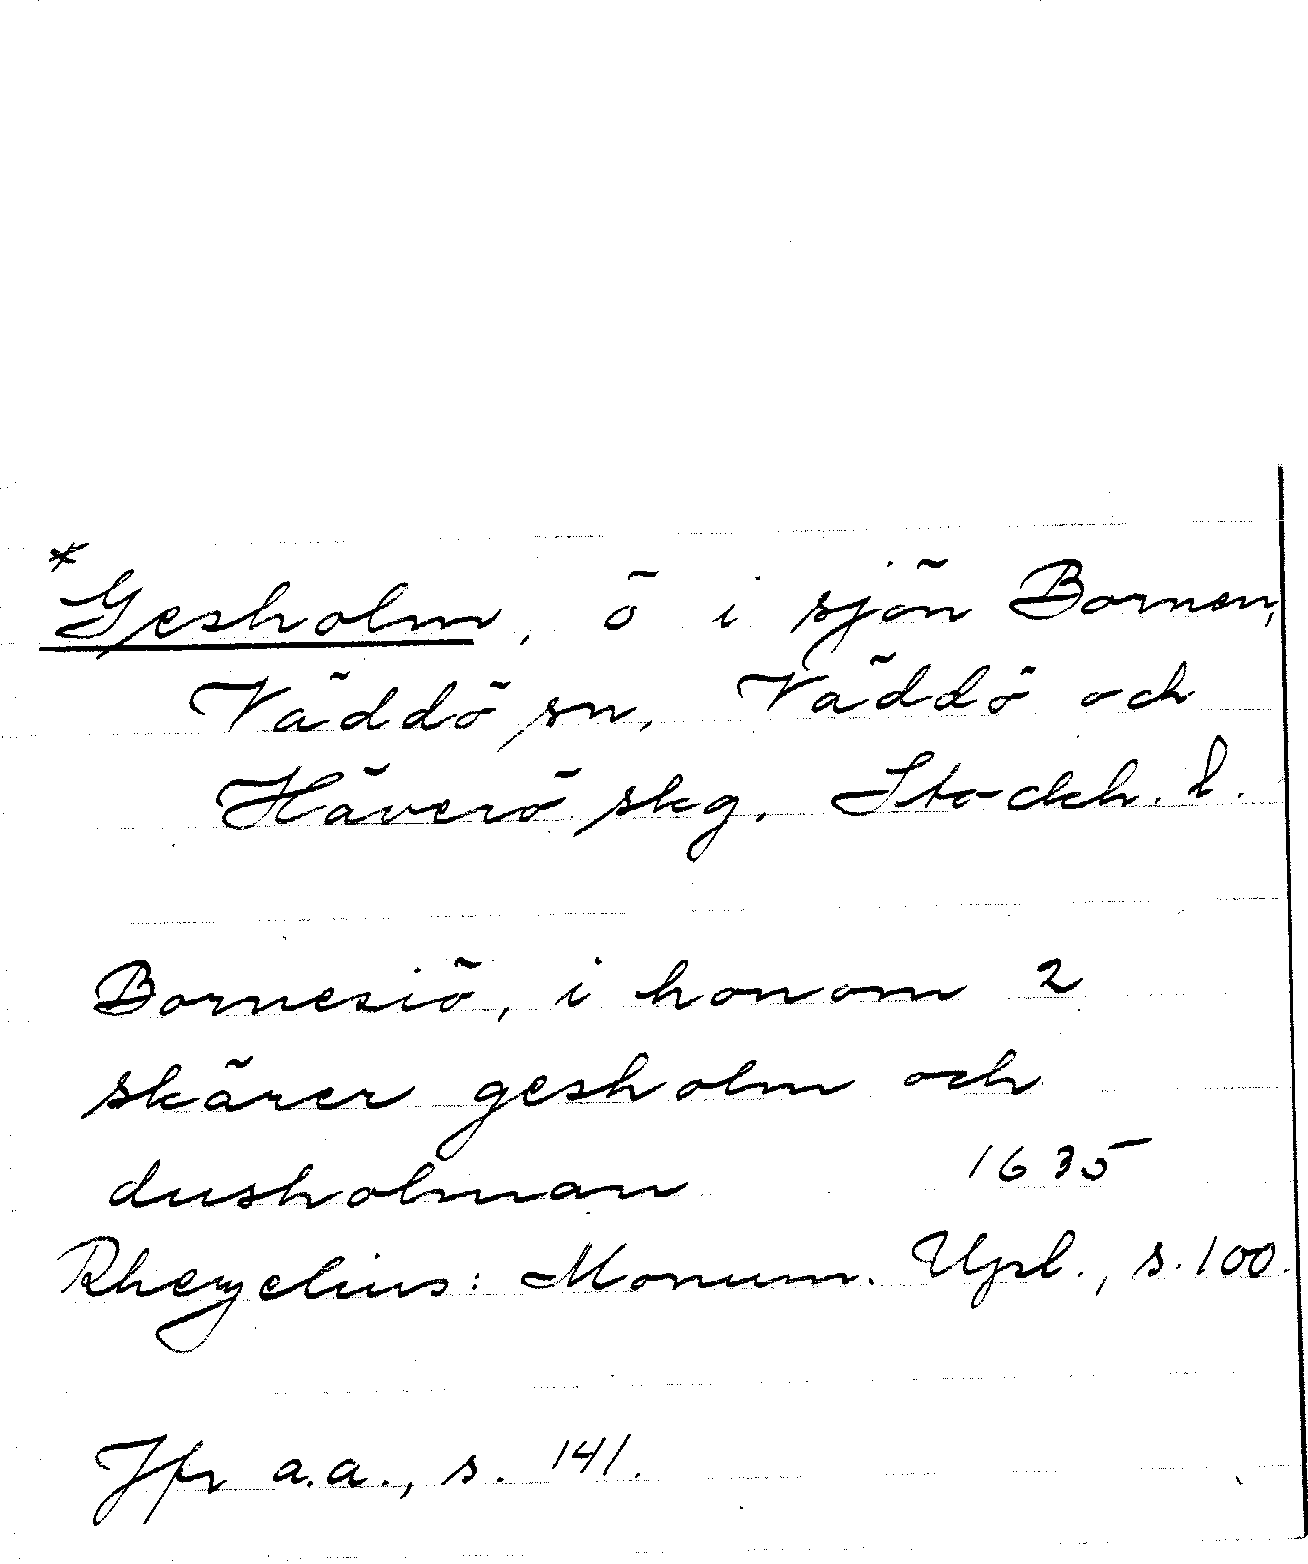 *Gesholm, ö i sjön Bornen,
Väddö sn, Väddö och
Häverö skg, Stockh. l.
Bornesiö, i honom 2
skärer gesholm och
dusholman 1635
Rhezelius: Monum. Upl., s. 100.
Jfr a.a., s. 141.